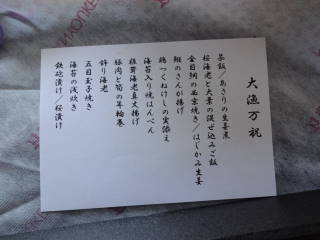 大漁万祝
茶飯/あさりの生姜煮
桜海老と大葉の混ぜ込みご飯
金目鯛の西京焼き/はじかみ生姜
鯵のさんが揚げ
鶏つくねけしの実添え
海苔入り焼はんぺん
椎茸海老真丈揚げ
豚肉と筍の年輪巻
飾り海老
五目玉子焼き
海苔の浅炊き
鉄砲漬け/桜漬け